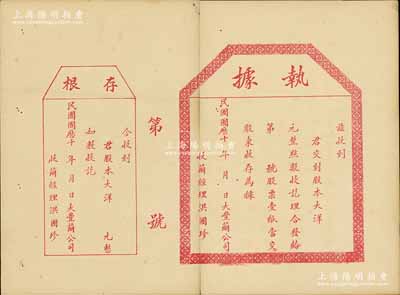 上海陽明拍賣
執據
茲收到
君交到股本大洋
元整照數收訖理合發給
第 號股票壹紙當交
股東收存為據
民國國曆十 年 月 日大豐繭公司
收繭經理洪國珍
第 號
存根
今收到
君股本大洋 元整
如數收訖
民國國曆十 年 月 日大豐繭公司
收繭經理洪國珍
上海陽明拍賣